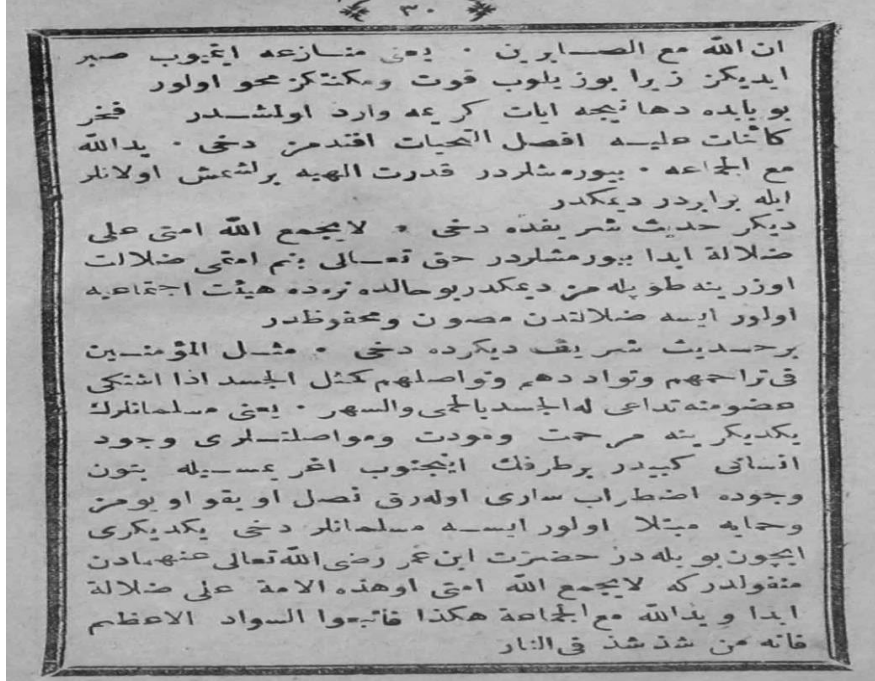 ٣٠
ان الله مع الصـابرين · يعنى منـازعه ايتميوب صبر
ايديكز زيرا بوزيلوب قوت ومكنتكز محو اولور
بو بابده دها نيجه ايات كريمه وارد اولمشـدر فخر
كائنات عليـه افضل التحيات افندمز دخى · يدالله
مع الجماعه · بيورمشلردر قدرت الهيه برلشمش اولانلر
ايله برابردر ديمكدر
ديكر حديث شريفده دخى · لايجمع الله امتى على
ضلالة ابدا بيورمشلردر حق تعـالى بنم امتمى ضلالت
اوزرينه طوپلەمز ديمكدر بو حالده نره ده هيئت اجتماعيه
اولور ايسه ضلالتدن مصون ومحفوظدر
بر حـديث شريف ديكرده دخى · مثـل المؤمنـين
فى تراحمهم وتواددهم وتواصلهم كمثل الجسد اذا اشتكى
عضو منه تداعى له الجسد بالحمى والسهر · يعنى مسلمانلرك
يكديكرينه مرحمت ومودت ومواصلتـلرى وجود
انسانى كبيدر بر طرفك اينجنوب اغريمـسيله بتون
وجوده اضطراب سارى اوله رق نصل اويقو اويومز
وحمايه مبتلا اولور ايسـه مسلمانلر دخى يكديكرى
ايچون بويله در حضرت ابن عمر رضى الله تعالى عنهمادن
منقولدركه لايجمع الله امتى او هذه الامة على ضلالة
ابدا ويدالله مع الجماعة هكذا فاتبعوا السواد الاعظم
فانه من شذ شذ فى النار